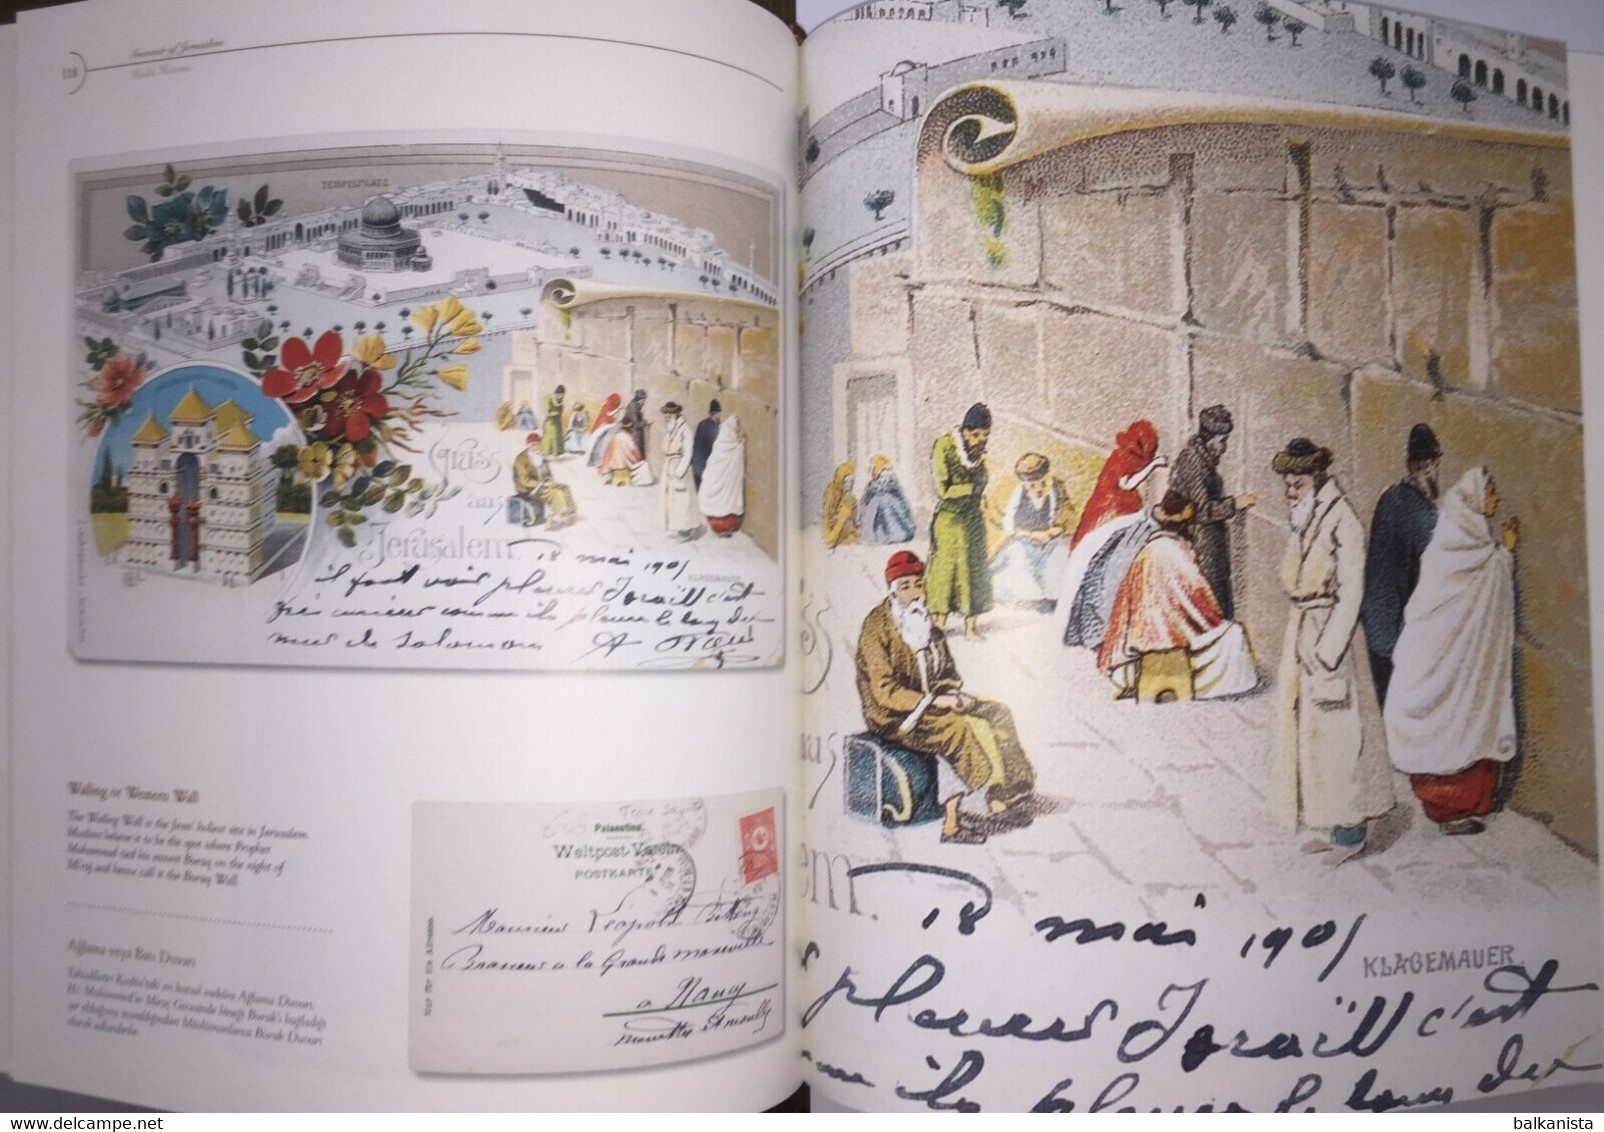 118
Souvenir of Jerusalem
TEMPELPLATZ
Gruss
aus
Jerusalem.
18 mai 1901
KLAGEMAUER.
il faut voir pleurer Israëll c'est
comme ils pleure le long des
mur de Salomon
Wailing or Western Wall
The Wailing Wall is the Jews' holiest site in Jerusalem.
Muslims believe it to be the spot where Prophet
Muhammad tied his mount Buraq on the night of
Miraj and hence call it the Buraq Wall.
Ağlama veya Batı Duvarı
Yahudilerin Kudüs'teki en kutsal mekânı Ağlama Duvarı,
Hz. Muhammed'in Miraç Gecesinde bineği Burak'ı bağladığı
yer olduğuna inanıldığından Müslümanlarca Burak Duvarı
olarak adlandırılır.
Palaestina
Weltpost-Verein
POSTKARTE
Nur für die Adresse
Monsieur Léopold
Brasseur à la Grande
à Nancy
Meurthe et Moselle
18 mai 1901
KLAGEMAUER.
pleurer Israëll c'est
comme ils pleure le long des
balkanista